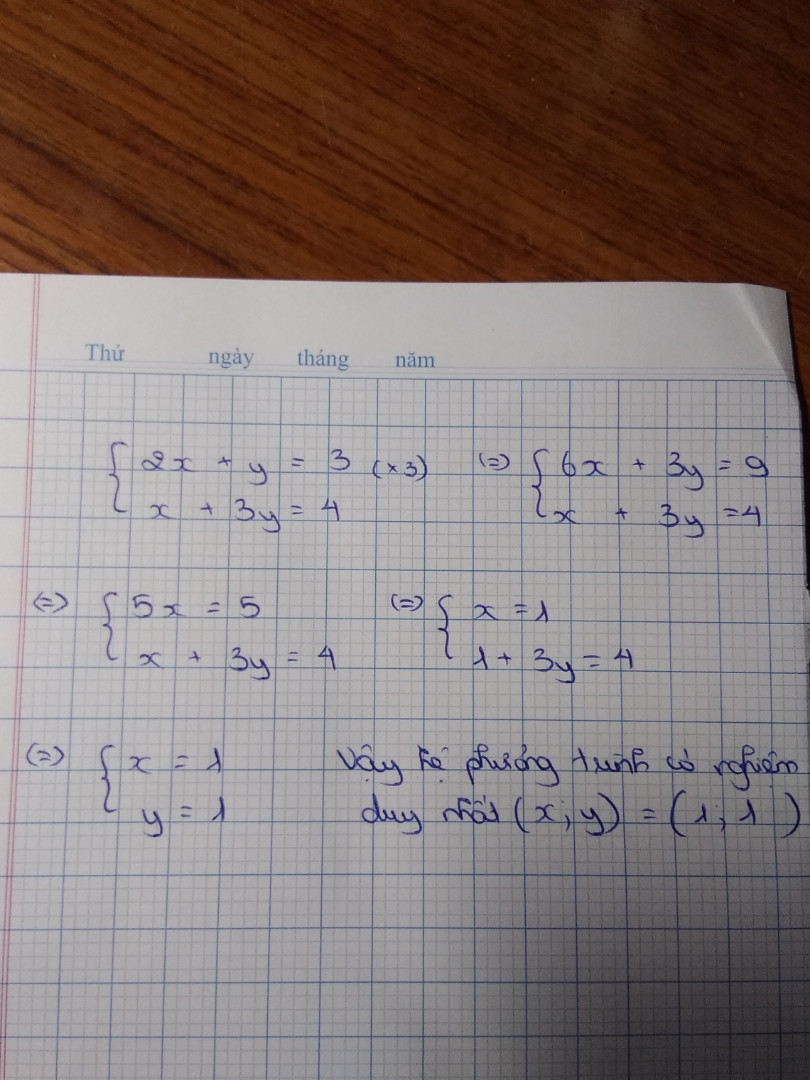 Thứ ngày tháng năm
{ 2x + y = 3 (×3) (=) { 6x + 3y = 9
x + 3y = 4 x + 3y = 4
(=) { 5x = 5 (=) { x = 1
x + 3y = 4 1 + 3y = 4
(=) { x = 1 Vậy hệ phương trình có nghiệm
y = 1 duy nhất (x; y) = (1; 1)